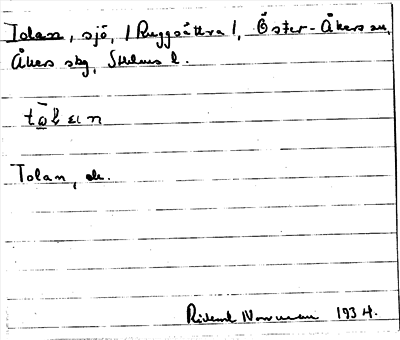 Tolan, sjö, /Ruggsättra/, Öster-Åkers sn,
Åkers skg, Sthlms l.
Tolan, ek.
Rickard Norrman 1934.